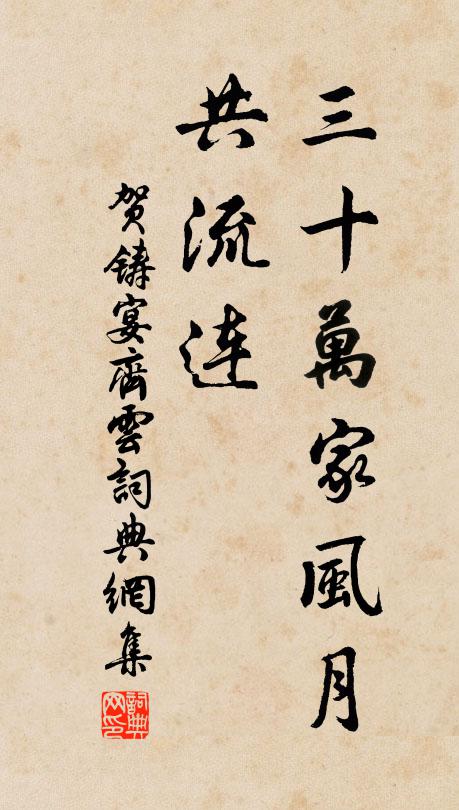 三十萬家風月
共流連
賀鑄宴齊雲詞典網集
詞典
网印